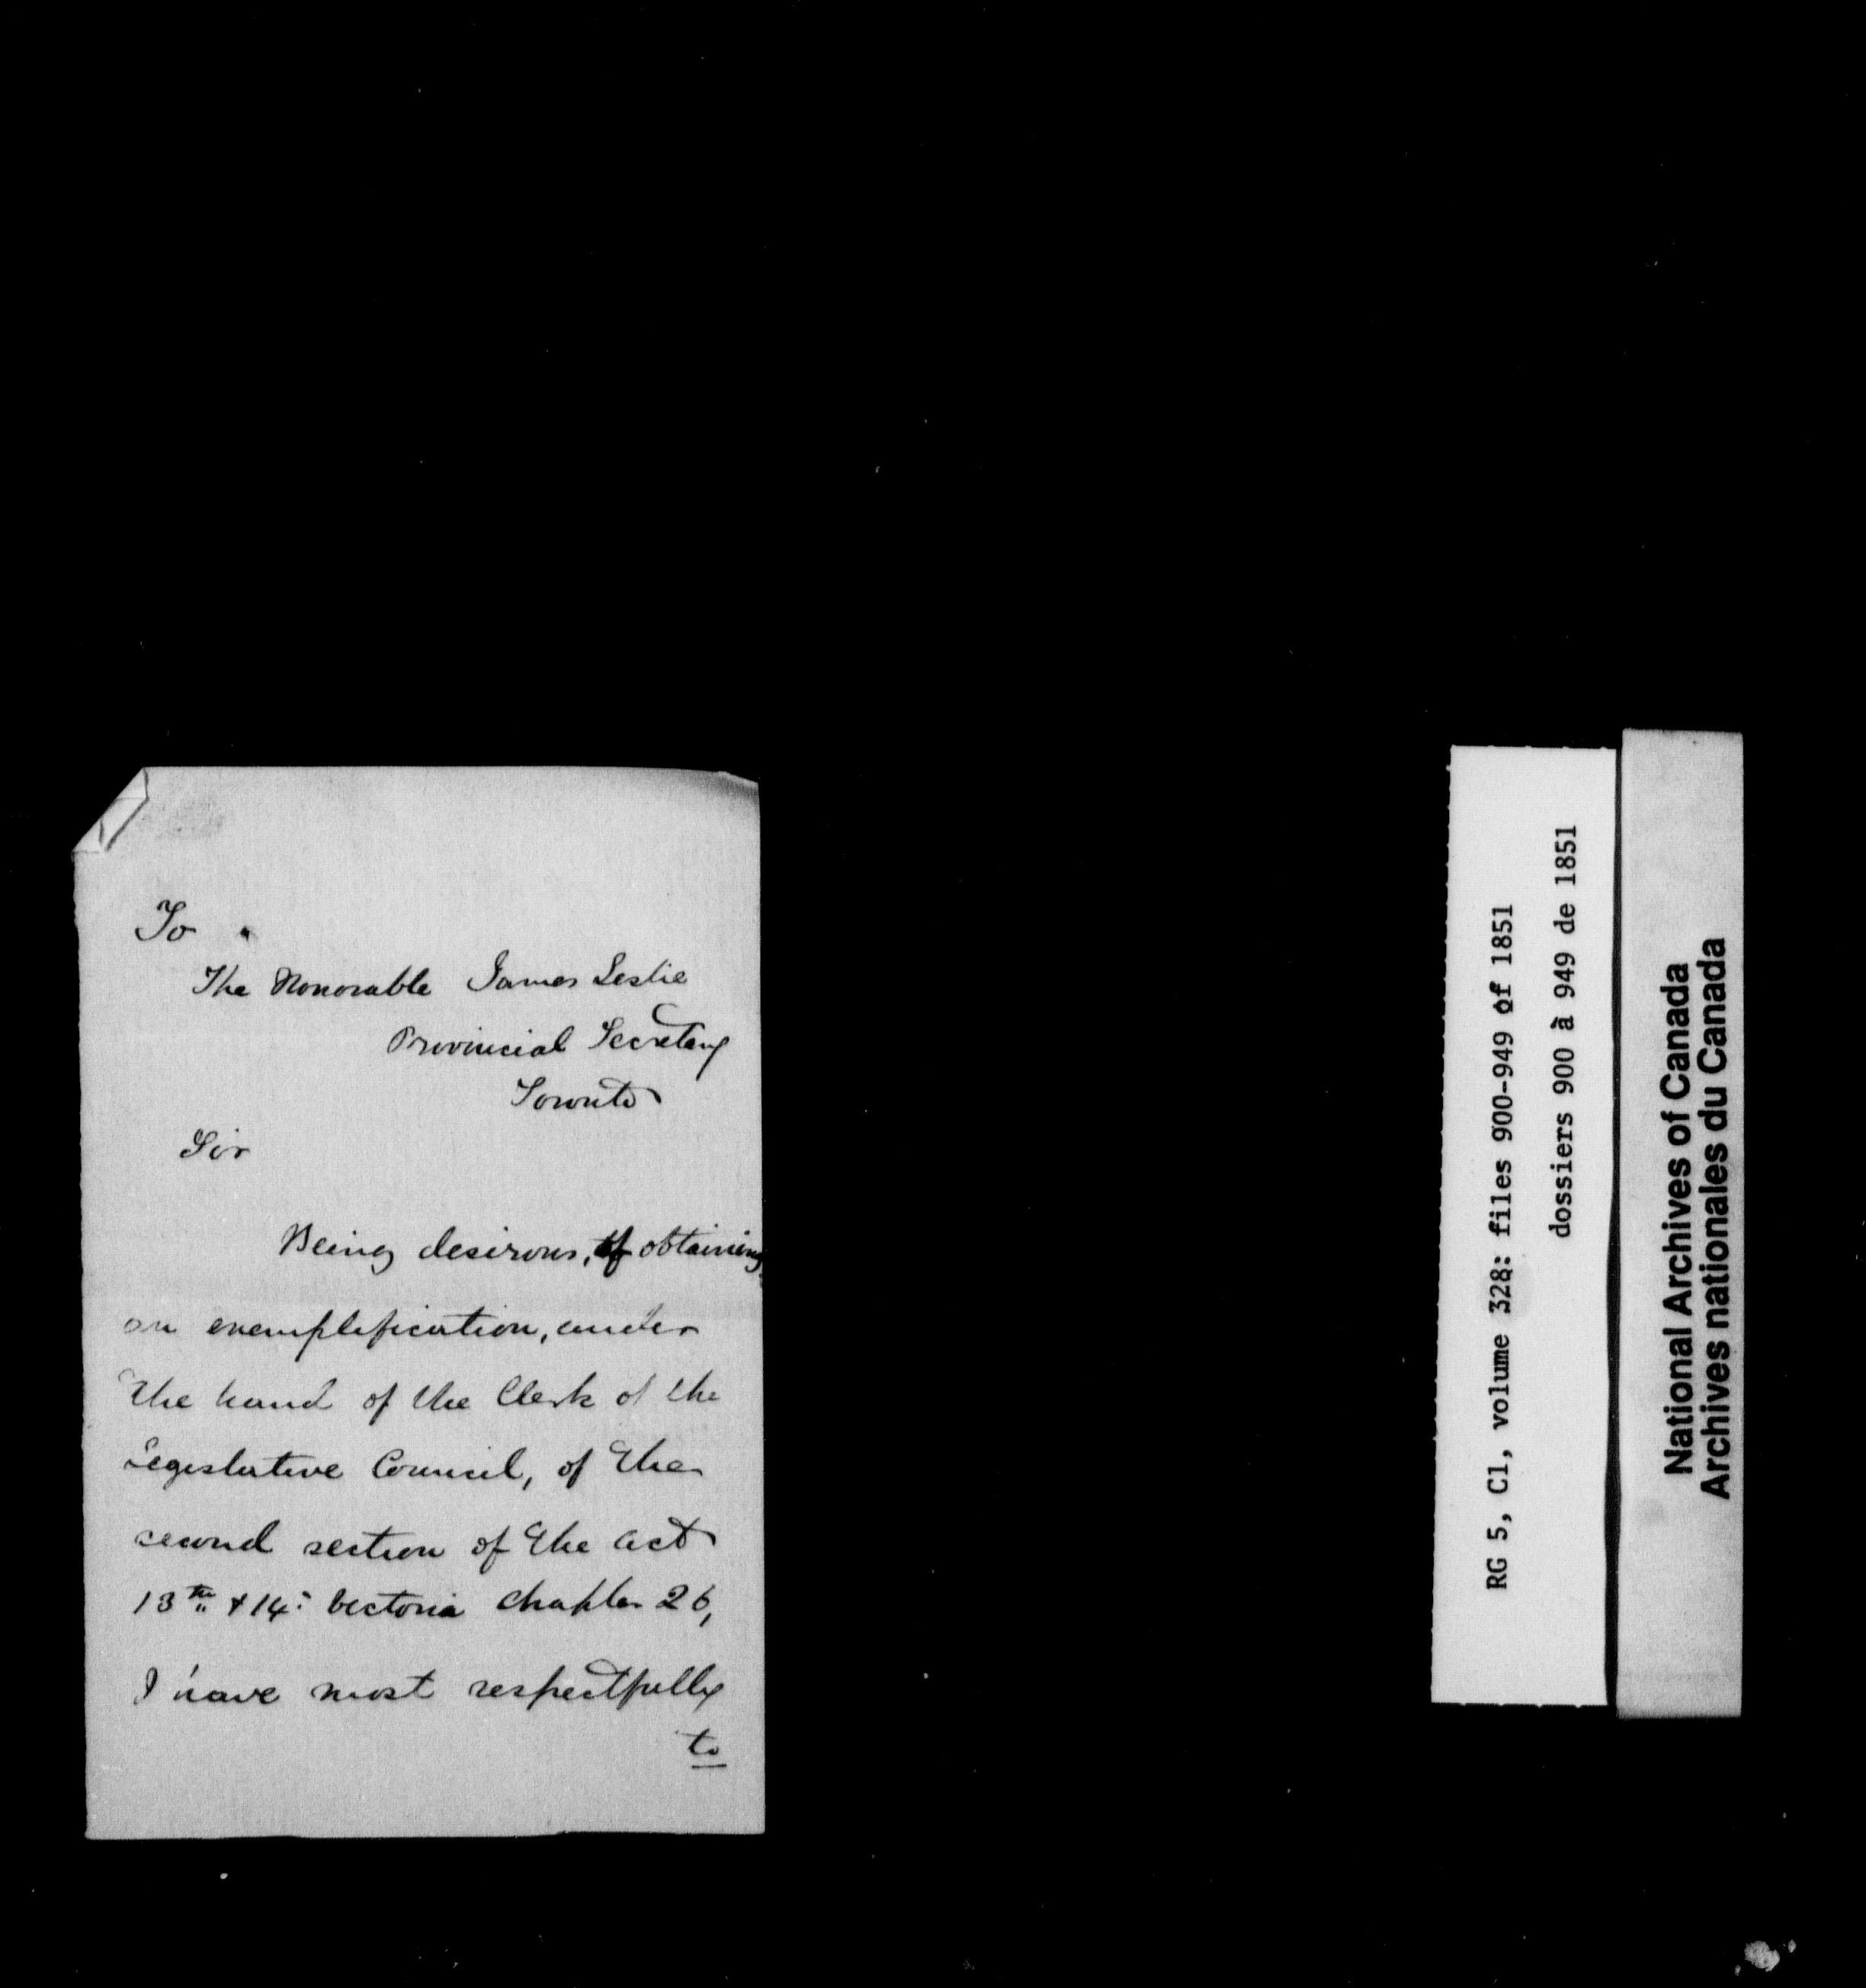 To
The Honorable James Leslie
Provincial Secretary
Toronto
Sir
Being desirous, of obtaining
an exemplification, under
the hand of the Clerk of the
Legislative Council, of the
second section of the act
13th & 14: Victoria Chapter 26,
I have most respectfully
to
RG 5, C1, volume 328: files 900-949 of 1851
dossiers 900 à 949 de 1851
National Archives of Canada
Archives nationales du Canada